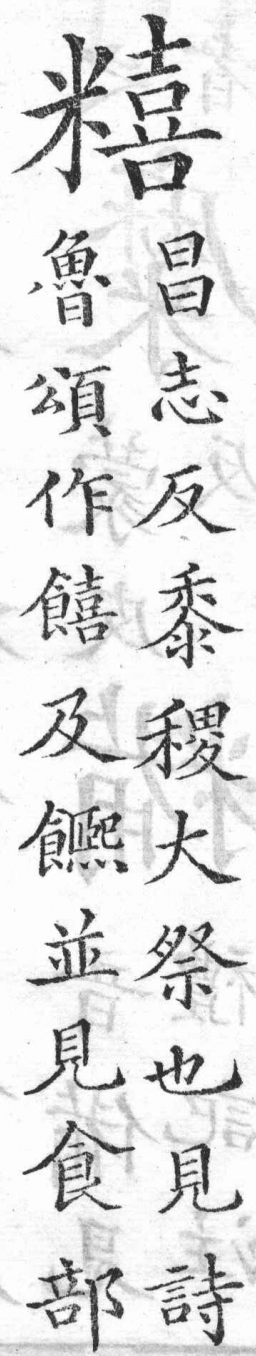 糦
昌志反黍稷大祭也見詩
魯頌作饎及𩟄並見食部